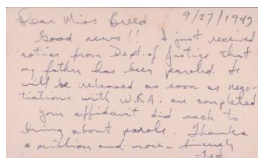 9/27/1943
Dear Miss Breed
Good news!! I just received
notice from Dept. of Justice that
my father has been paroled. He
will be released as soon as nego-
tiations with W.R.A. are completed
Your affidavit did much to
bring about parole. Thanks
a million and more - Sincerely
-Ted-